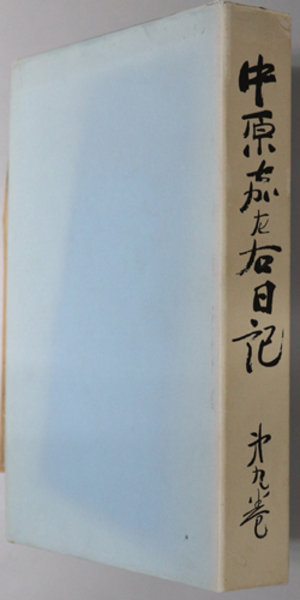 中原嘉左右日記
第九巻